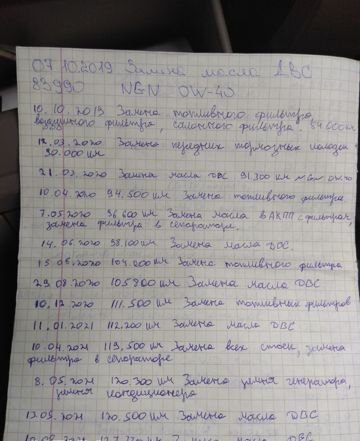 07.10.2019 Замена масла ДВС
83990 NGN 0W-40
10.10.2019 Замена топливного фильтра,
воздушного фильтра, салонного фильтра 84000км
12.03.2020 Замена передних тормозных колодок
90.000 км
21.03.2020 Замена масла ДВС 91.300 км NGN 0W-40
10.04.2020 94.500км Замена топливного фильтра
7.05.2020 96600км Замена масла в АКПП с фильтром,
замена фильтра в сепараторе.
14.06.2020 98.100км Замена масла ДВС
104.000км Замена топливного фильтра
29.08.2020 105900км Замена масла ДВС
10.12.2020 111.500км Замена топливных фильтров
11.01.2021 112.200км Замена масла ДВС
10.04.2021 119.500км Замена всех стоек, замена
фильтра в сепараторе
8.05.2021 120.300км Замена ремня генератора,
ремня кондиционера
13.05.2021 120.500км Замена масла ДВС
масла ДВС